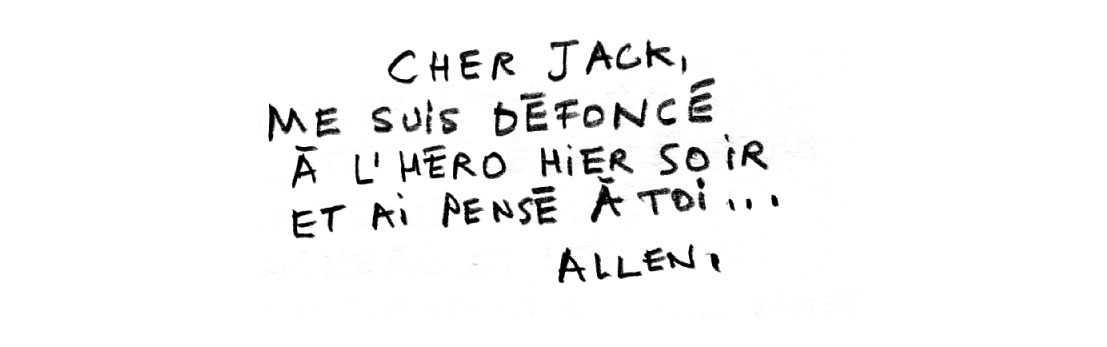 CHER JACK,
ME SUIS DÉFONCÉ
À L'HÉRO HIER SOIR
ET AI PENSÉ À TOI...
ALLEN.